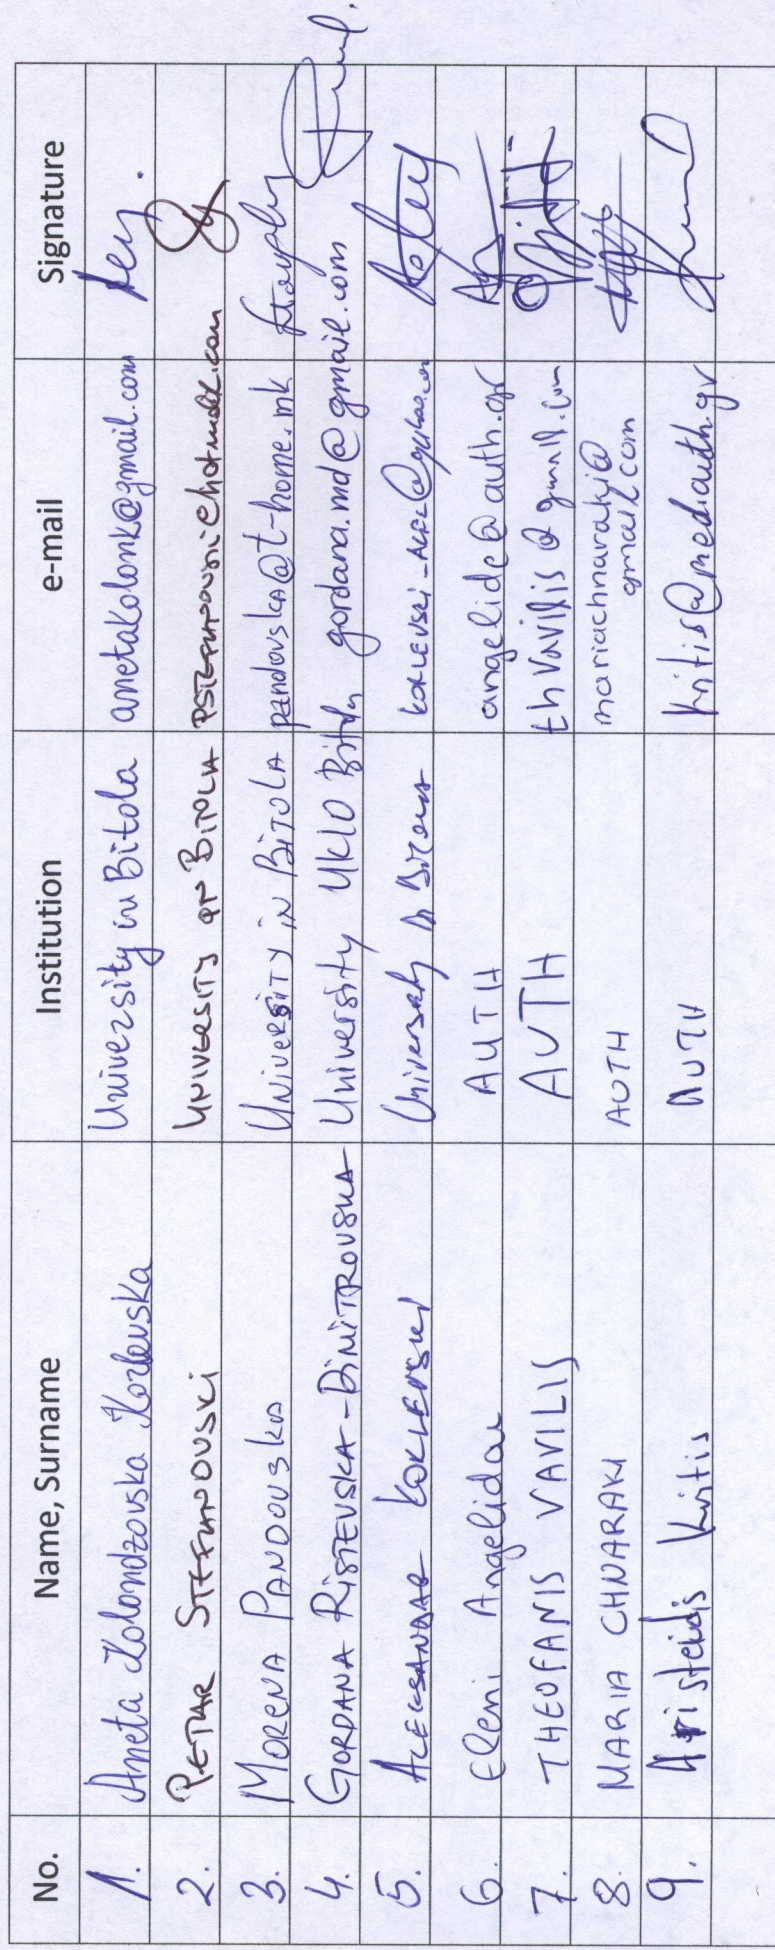 No. Name, Surname Institution e-mail Signature
1. Aneta Kolondzovska Korlevska University in Bitola anetakolonk@gmail.com
2. PETAR STEFANOVSKI UNIVERSITY IN BITOLA
3. MORENA PANDOVSKA UNIVERSITY IN BITOLA pandovska@t-home.mk
4. GORDANA RISTEVSKA-DIMITROVSKA University UKLO Bitola gordana.md@gmail.com
5. ALEKSANDAR University in
6. Eleni Angelidou AUTH angelide@auth.gr
7. THEOFANIS VAVILIS AUTH thvavilis@gmail.com
8. MARIA CHNARAKI AUTH mariachnaraki@
gmail.com
9. Aristeidis Kritis AUTH kritis@med.auth.gr